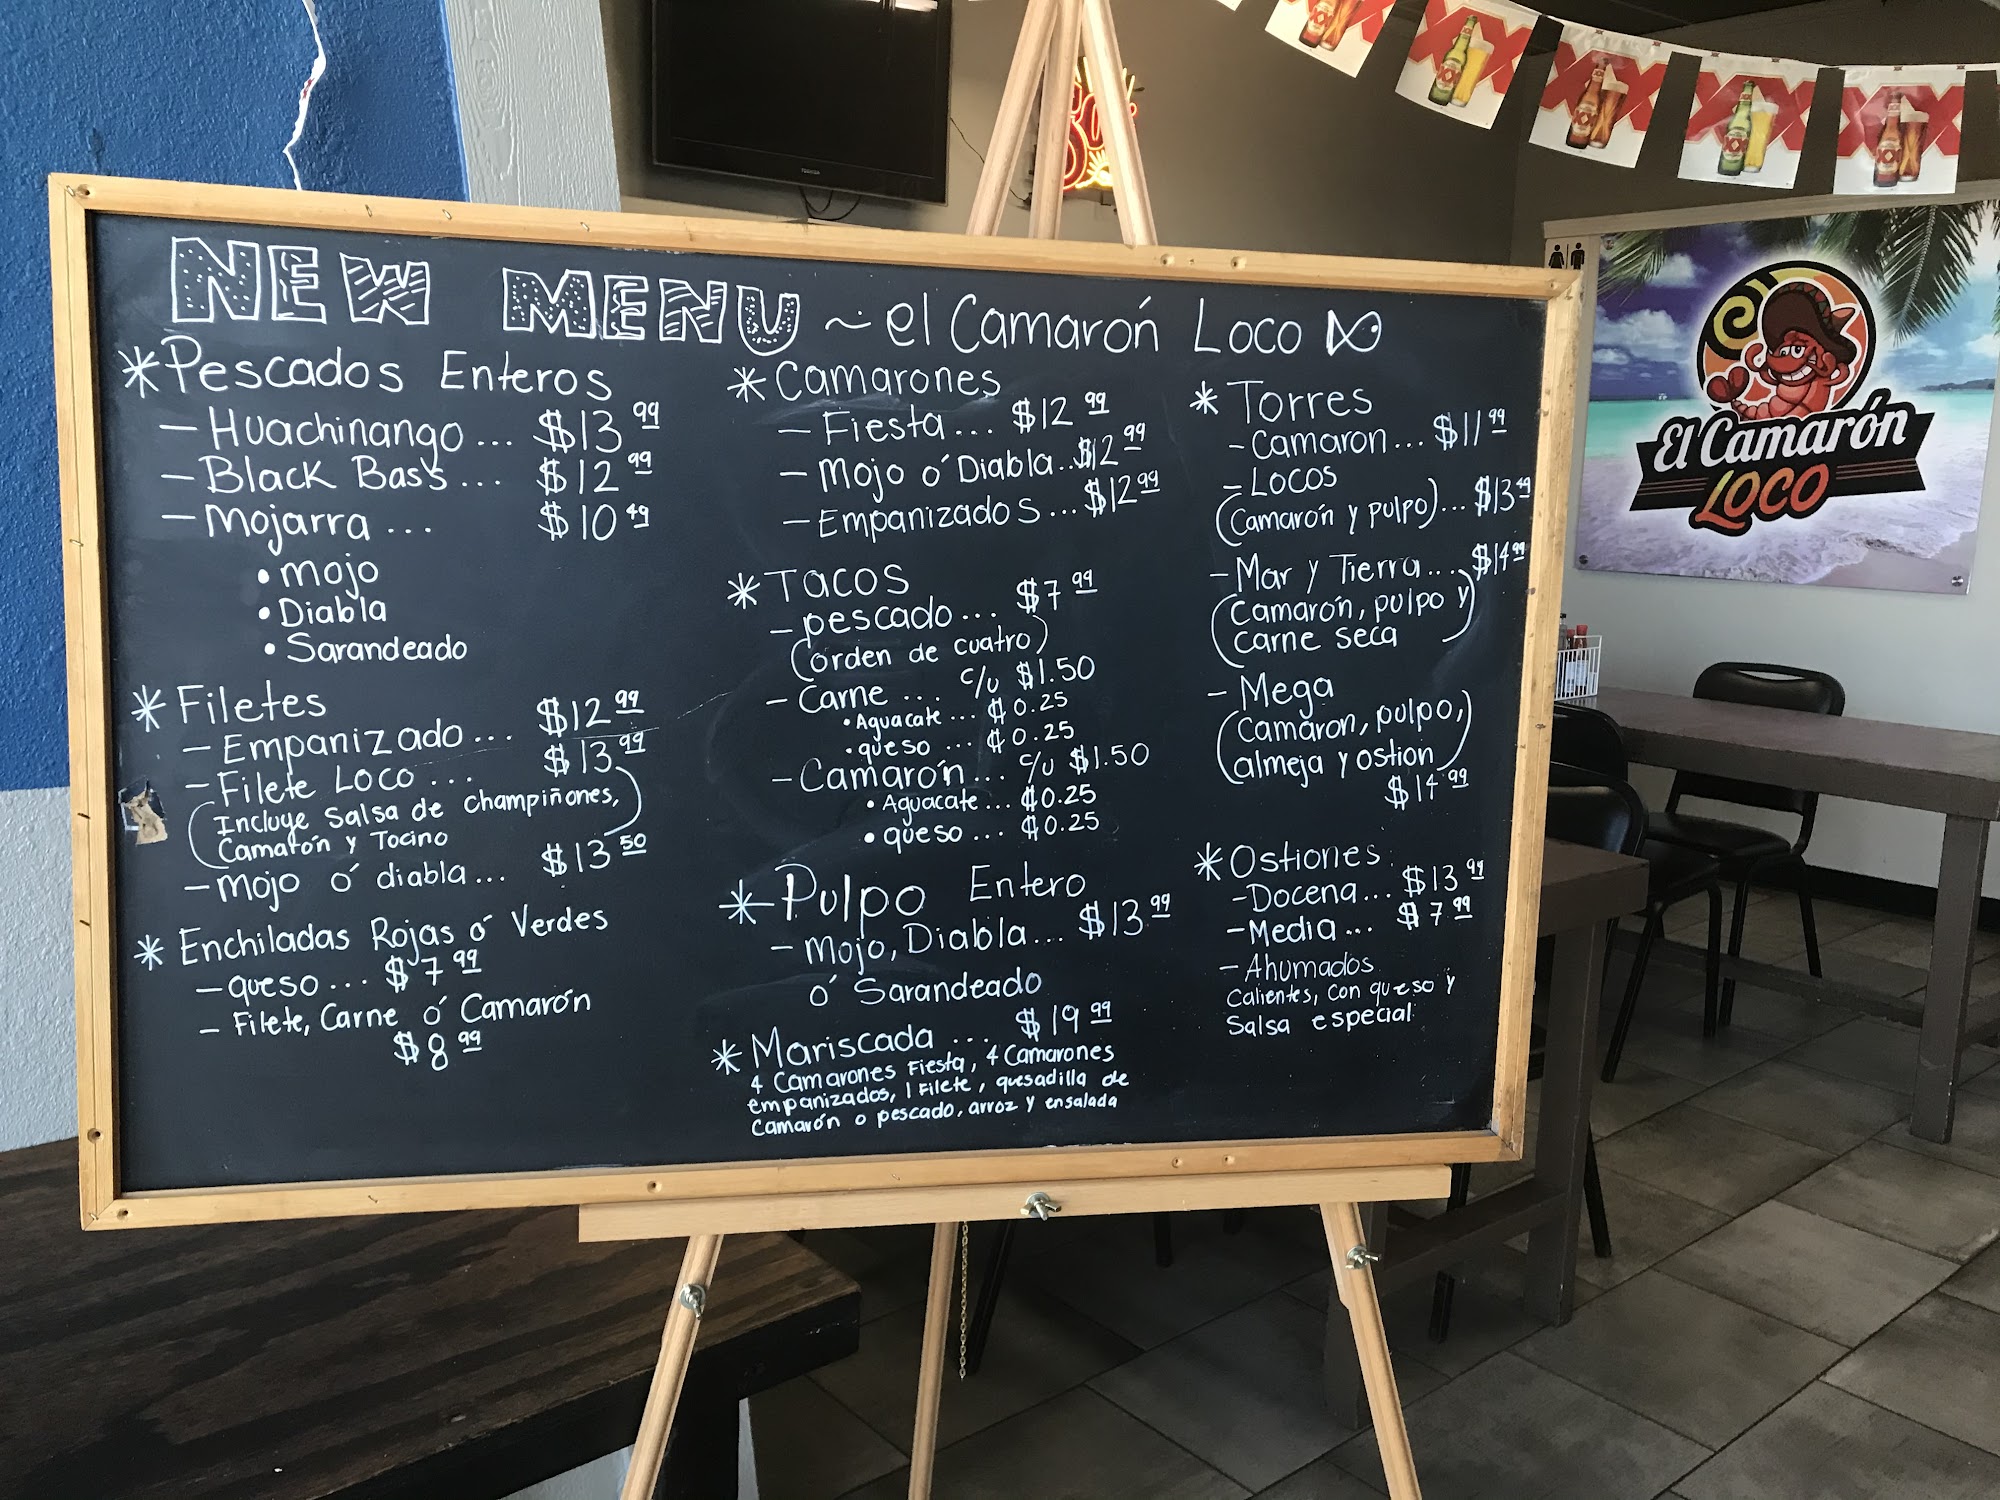 NEW MENU ~ el Camarón Loco
* Pescados Enteros
- Huachinango... $13.99
- Black Bass... $12.99
- Mojarra... $10.49
• Mojo
• Diabla
• Sarandeado
* Filetes
- Empanizado... $12.99
- Filete Loco... $13.99
(Incluye Salsa de champiñones,
Camarón y Tocino)
- Mojo ó diabla... $13.50
* Enchiladas Rojas ó Verdes
- queso... $7.99
- Filete, Carne ó Camarón
$8.99
* Camarones
- Fiesta... $12.99
- Mojo ó Diabla... $12.99
- Empanizados... $12.99
* Tacos
- pescado... $7.99
(orden de cuatro)
- Carne... c/u $1.50
• Aguacate... $0.25
• queso... $0.25
- Camarón... c/u $1.50
• Aguacate... $0.25
• queso... $0.25
* Pulpo Entero
- Mojo, Diabla... $13.99
ó Sarandeado
* Mariscada... $19.99
4 Camarones Fiesta, 4 Camarones
empanizados, 1 Filete, quesadilla de
Camarón o pescado, arroz y ensalada
* Torres
- Camaron... $11.99
- Locos
(Camarón y pulpo)... $13.49
- Mar y Tierra... $14.99
(Camarón, pulpo y
carne seca)
- Mega
(Camaron, pulpo,
almeja y ostion)
$14.99
* Ostiones:
- Docena... $13.99
- Media... $7.99
- Ahumados
Calientes, con queso y
Salsa especial
El Camarón
LOCO
TOSHIBA
XX
XX
XX
XX
XX